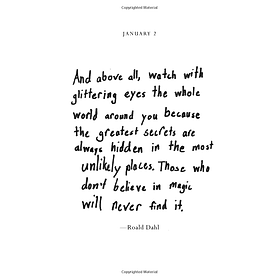 Copyrighted Material
JANUARY 2
And above all, watch with
glittering eyes the whole
world around you because
the greatest secrets are
always hidden in the most
unlikely places. Those who
don't believe in magic
will never find it.
—Roald Dahl
Copyrighted Material